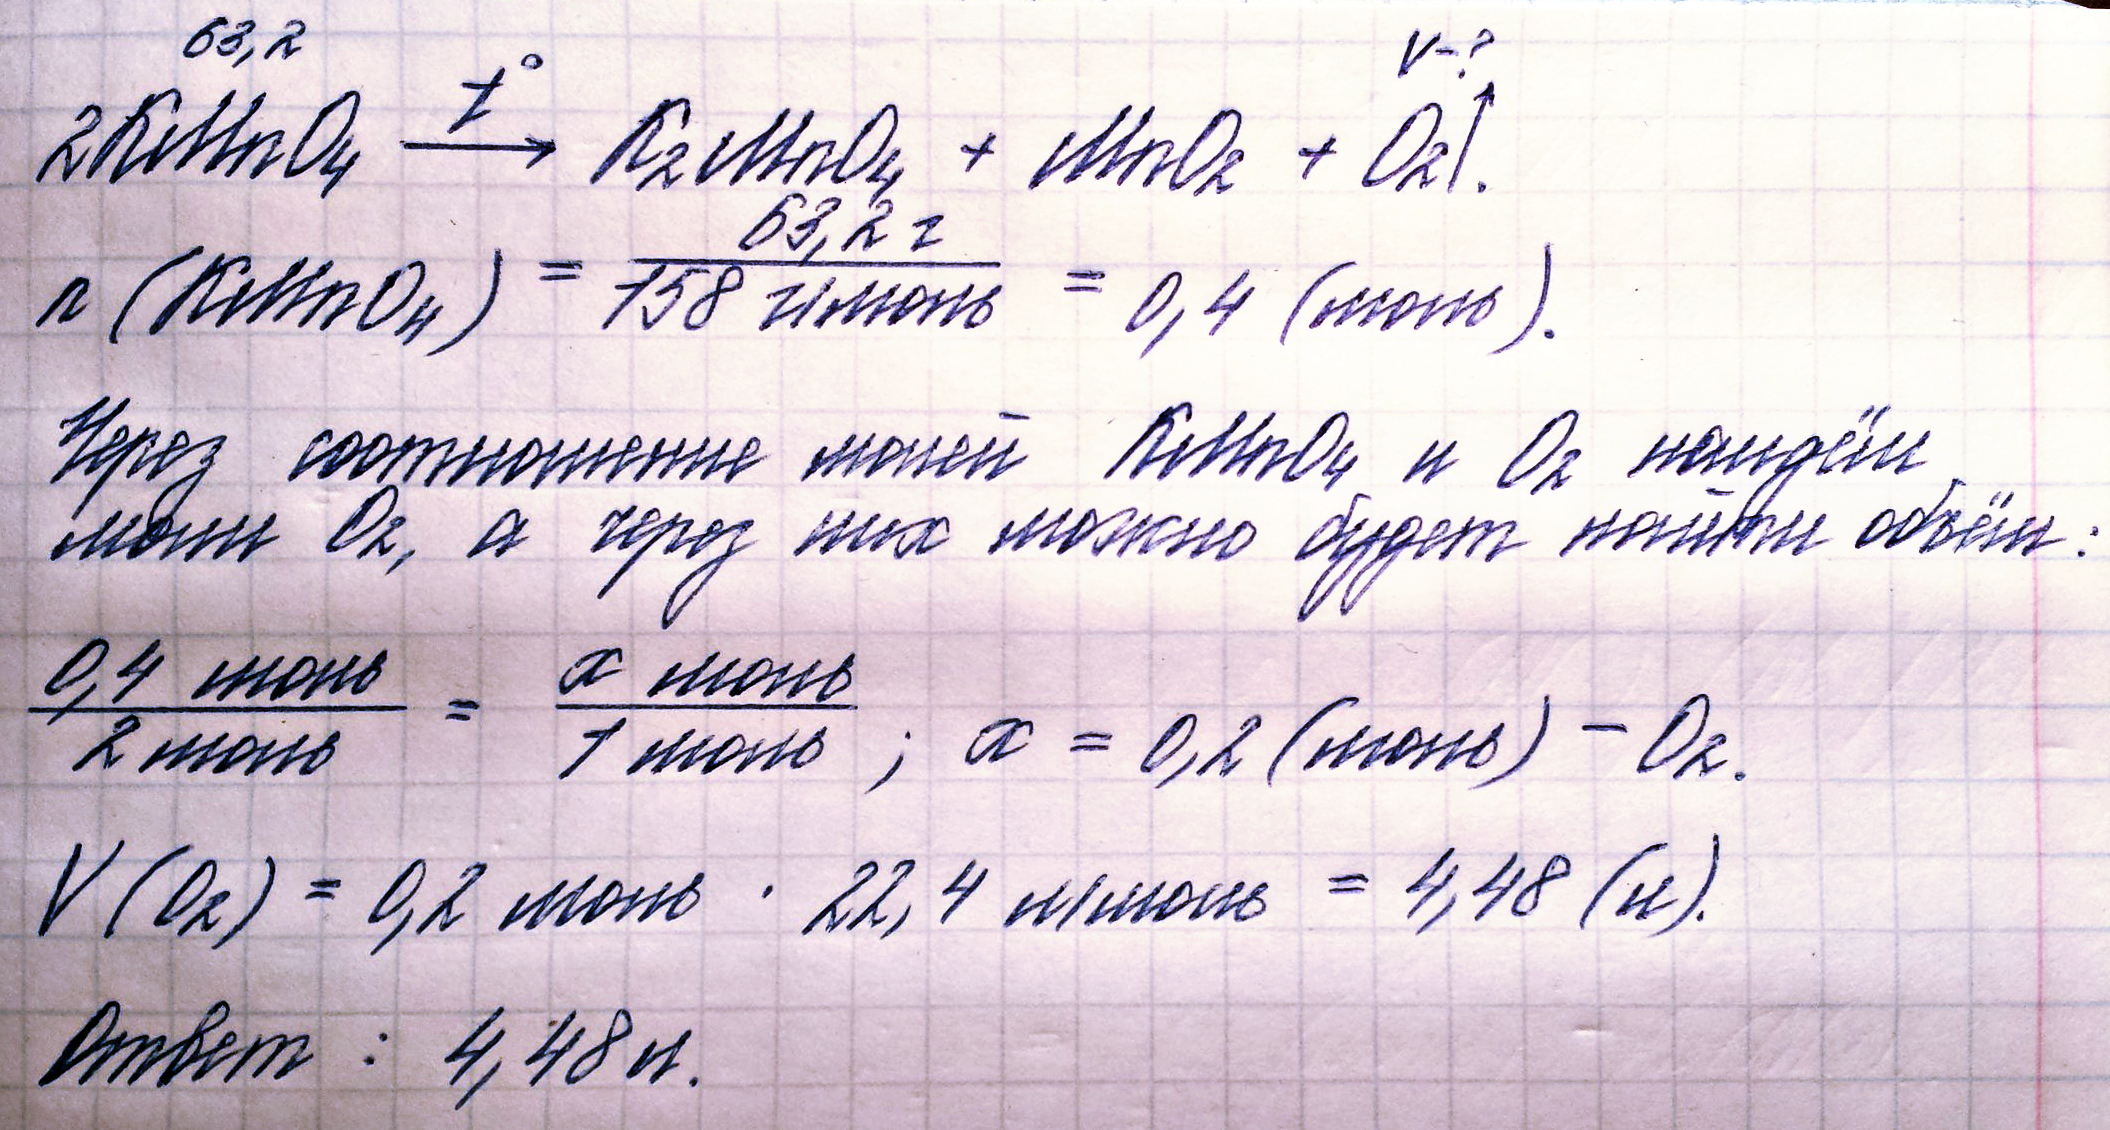 63,2 V-?
2KMnO₄ —t°→ K₂MnO₄ + MnO₂ + O₂↑.
n (KMnO₄) = 63,2 г / 158 г/моль = 0,4 (моль).
Через соотношение молей KMnO₄ и O₂ найдём
моли O₂, а через них можно будет найти объём:
0,4 моль / 2 моль = x моль / 1 моль ; x = 0,2 (моль) – O₂.
V (O₂) = 0,2 моль · 22,4 л/моль = 4,48 (л).
Ответ : 4,48 л.